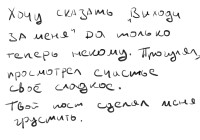 Хочу сказать „Выходи
за меня" да только
теперь некому. Прощелял,
просмотрел счастье
своё сладкое.
Твой пост сделал меня
грустить.